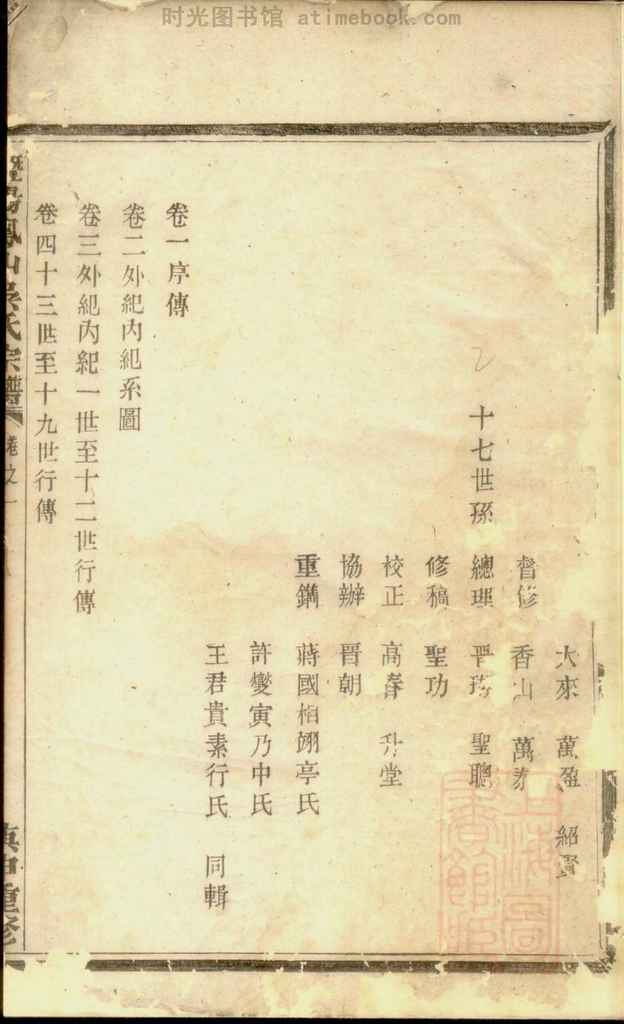 时光图书馆 atimebook.com
大來 萬盈 紹賢
督修 香山 萬泰
十七世孫 總理 晋 聖聰
修稿 聖功
校正 高春 升堂
協辦 晋朝
重鐫 蔣國栢翊亭氏
許燮寅乃中氏
王君貴素行氏 同輯
卷一序傳
卷二外紀內紀系圖
卷三外紀內紀一世至十二世行傳
卷四十三世至十九世行傳
暨陽鳳山吳氏宗譜 卷之一 重修
上海圖書館藏